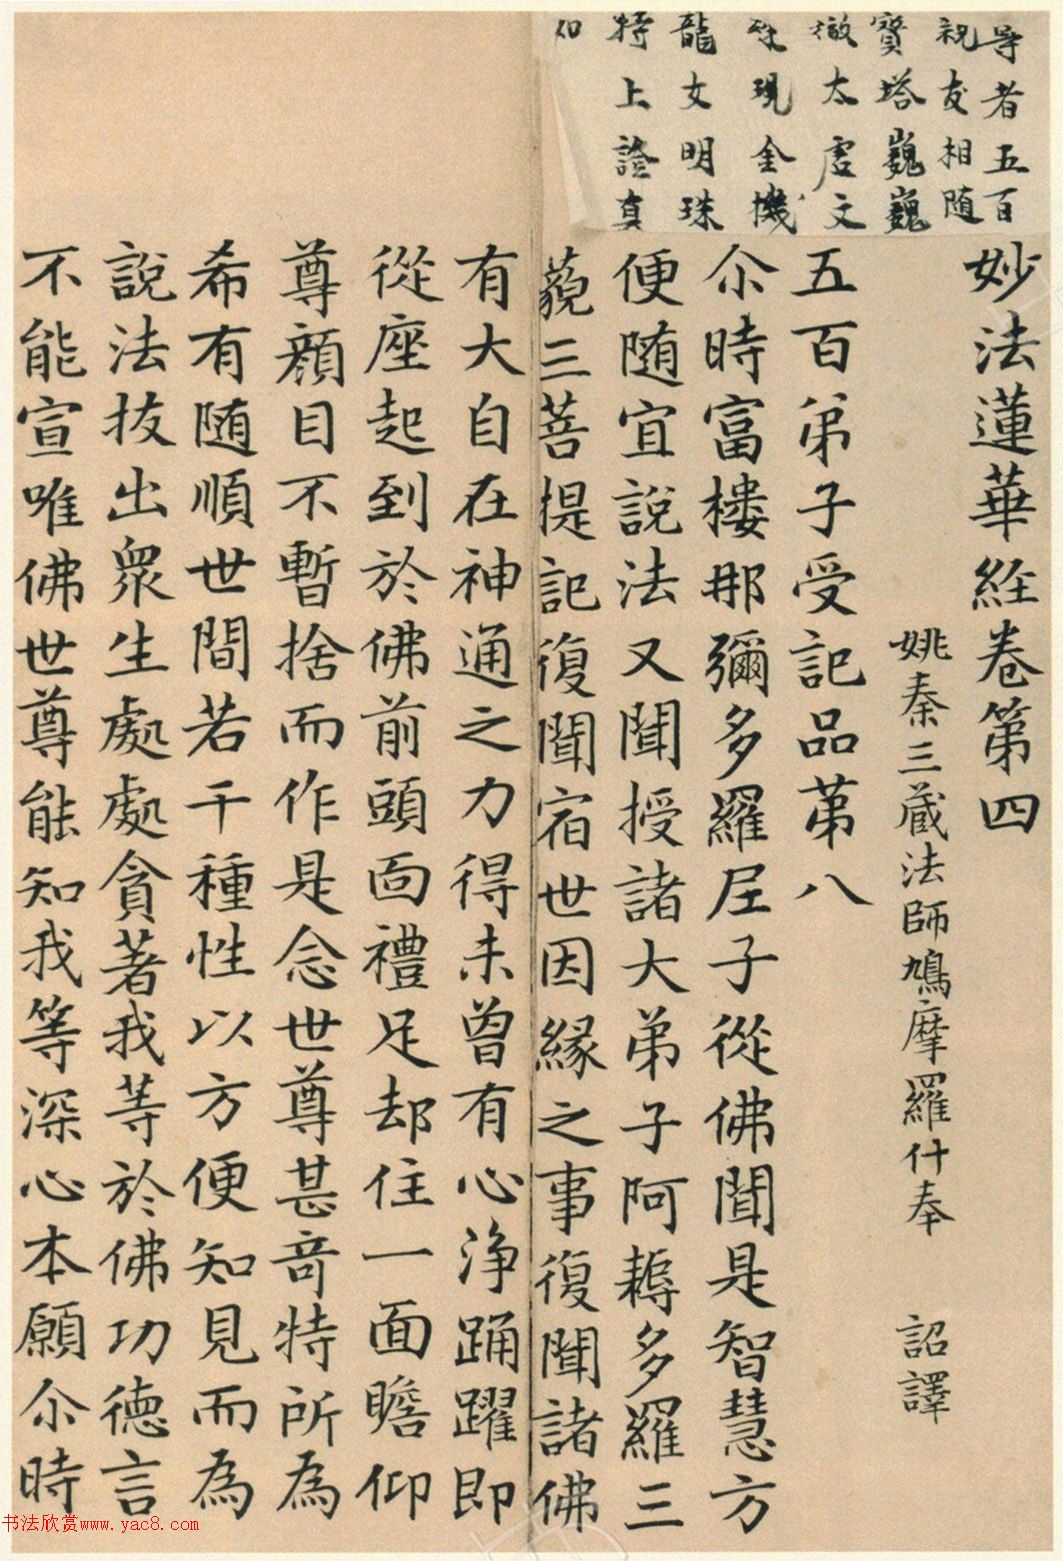 妙法蓮華經卷第四
姚秦三藏法師鳩摩羅什奉 詔譯
五百弟子受記品第八
尒時富樓那彌多羅尼子從佛聞是智慧方
便隨宜說法又聞授諸大弟子阿耨多羅三
藐三菩提記復聞宿世因緣之事復聞諸佛
有大自在神通之力得未曾有心淨踊躍即
從座起到於佛前頭面禮足却住一面瞻仰
尊顏目不暫捨而作是念世尊甚奇特所為
希有随順世間若干種性以方便知見而為
說法拔出眾生處處貪著我等於佛功德言
不能宣唯佛世尊能知我等深心本願尒時
者五百
親友相随
寳塔巍巍
徹太虛文
殊現金機
龍女明珠
特上證真
书法欣赏www.yac8.com